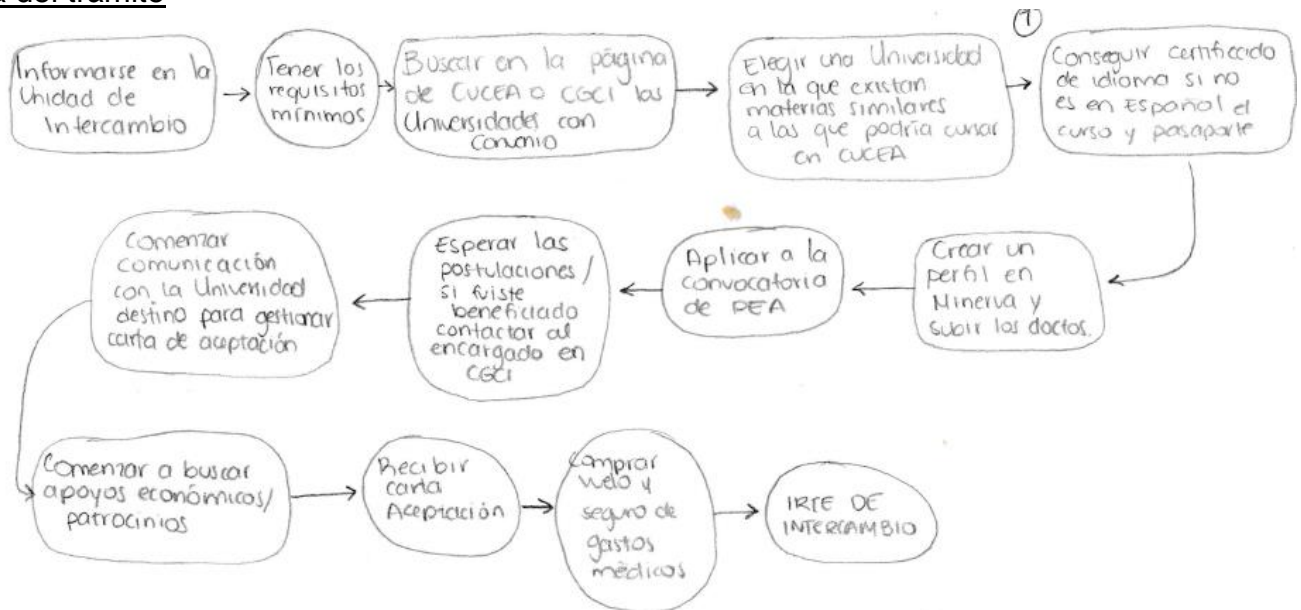 a del trámite
Informarse en la
Unidad de
Intercambio
Tener los
requisitos
mínimos
Buscar en la página
de CUCEA o CGCI las
Universidades con
Convenio
Elegir una Universidad
en la que existan
materias similares
a las que podría cursar
en CUCEA
1
Conseguir certificado
de idioma si no
es en Español el
curso y pasaporte
Crear un
perfil en
Minerva y
subir los doctos.
Aplicar a la
convocatoria
de PEA
Esperar las
postulaciones/
si fuiste
beneficiado
contactar al
encargado en
CGCI
Comenzar
comunicación
con la Universidad
destino para gestionar
carta de aceptación
Comenzar a buscar
apoyos económicos/
patrocinios
Recibir
carta
Aceptación
Comprar
vuelo y
seguro de
gastos
médicos
IRTE DE
INTERCAMBIO